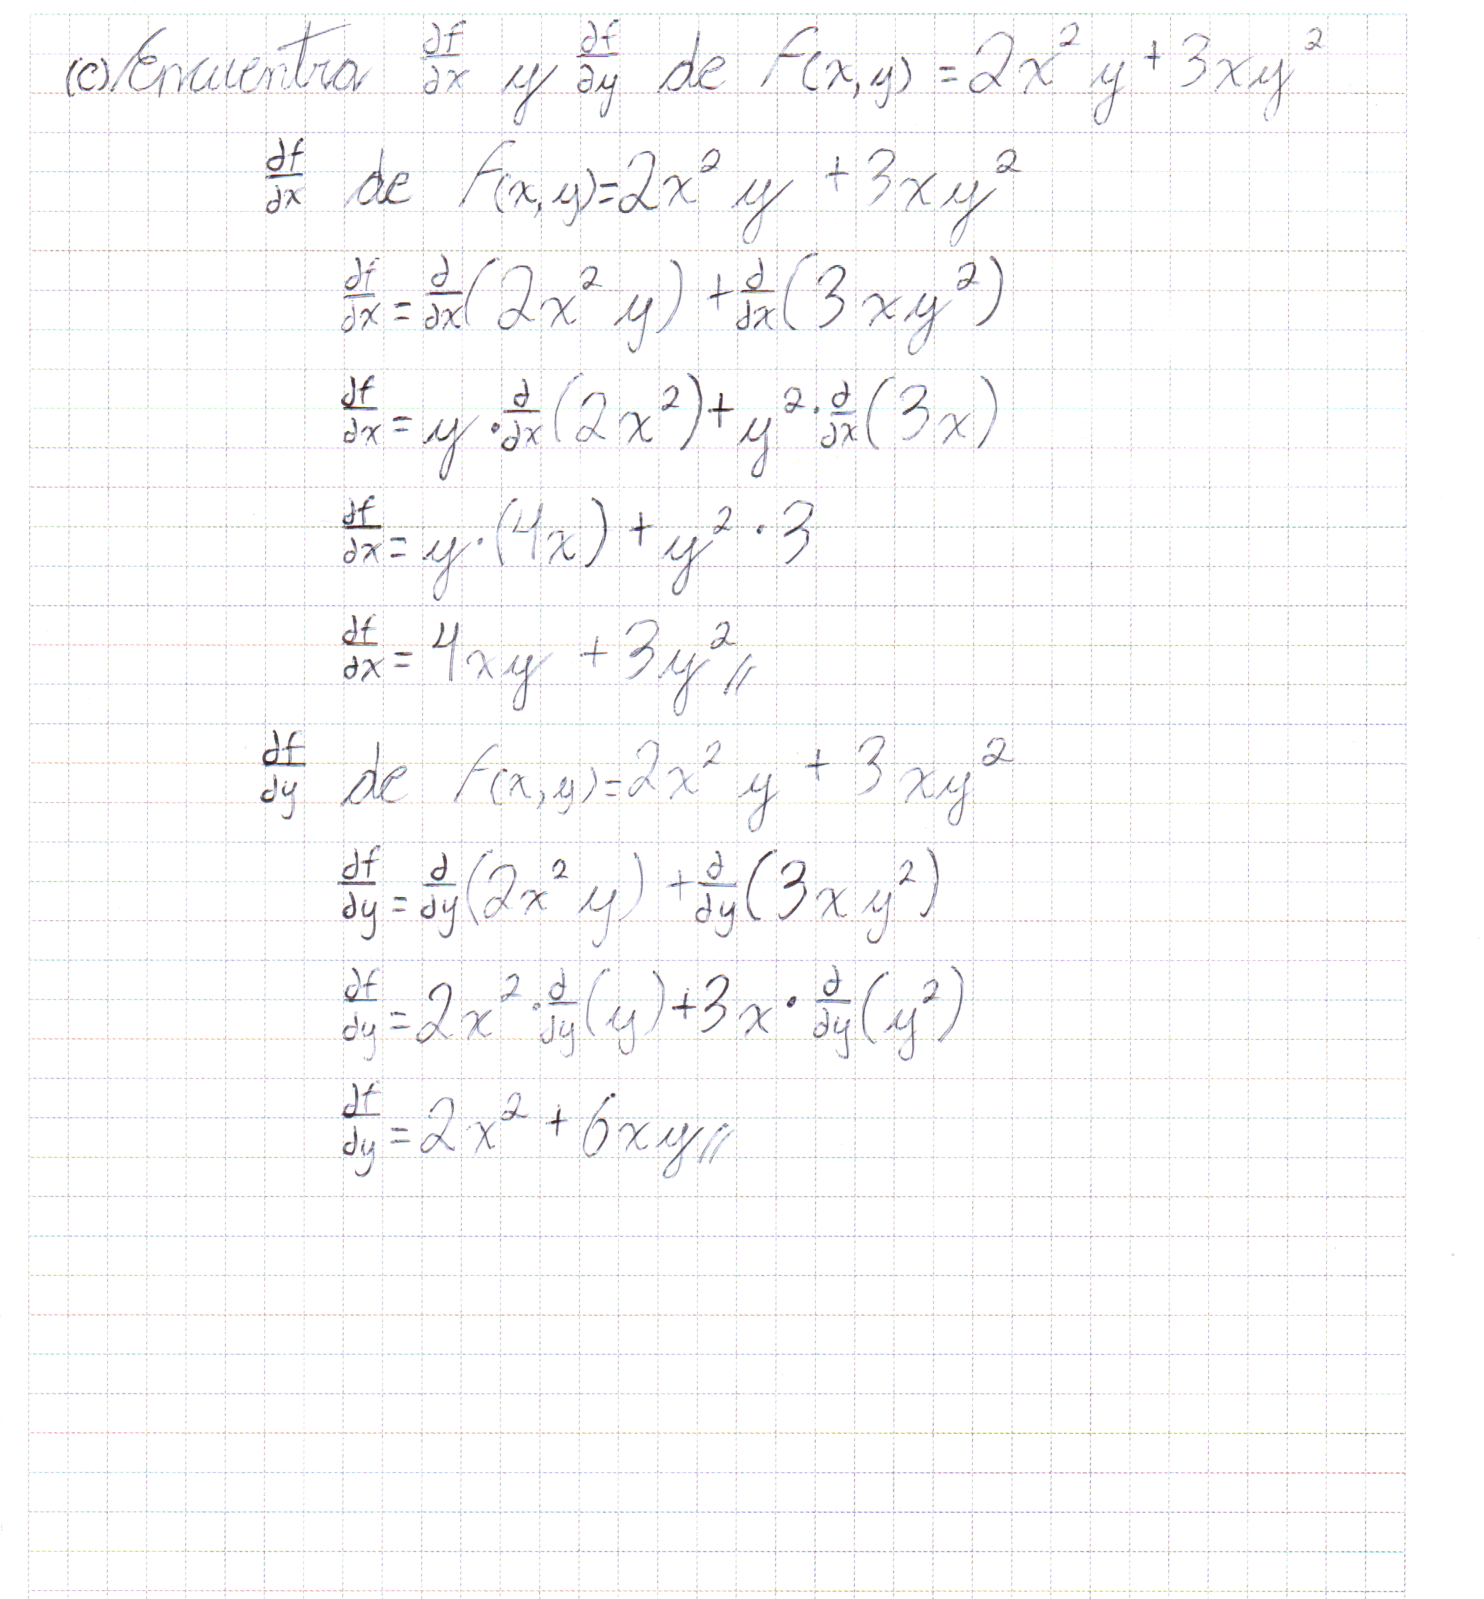 (c) Encuentra ∂f/∂x y ∂f/∂y de f(x,y) = 2x² y + 3xy²
∂f/∂x de f(x,y)=2x² y + 3xy²
∂f/∂x = ∂/∂x(2x² y) + ∂/∂x(3xy²)
∂f/∂x = y · ∂/∂x(2x²) + y² · ∂/∂x(3x)
∂f/∂x = y · (4x) + y² · 3
∂f/∂x = 4xy + 3y² //
∂f/∂y de f(x,y)=2x² y + 3xy²
∂f/∂y = ∂/∂y(2x² y) + ∂/∂y(3xy²)
∂f/∂y = 2x² · ∂/∂y(y) + 3x · ∂/∂y(y²)
∂f/∂y = 2x² + 6xy //